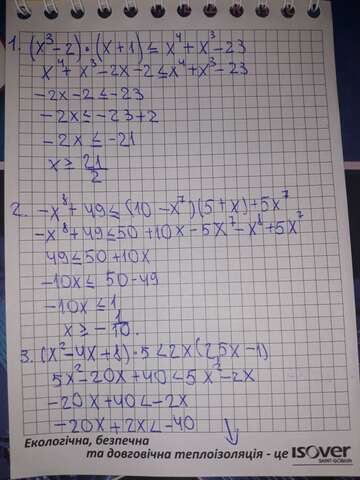 1. (x³-2)·(x+1) ≤ x⁴+x³-23
x⁴+x³-2x-2 ≤ x⁴+x³-23
-2x-2 ≤ -23
-2x ≤ -23+2
-2x ≤ -21
x ≥ 21/2
2. -x⁸+49 ≤ (10-x⁷)(5+x)+5x⁷
-x⁸+49 ≤ 50+10x-5x⁷-x⁸+5x⁷
49 ≤ 50+10x
-10x ≤ 50-49
-10x ≤ 1
x ≥ -1/10.
3. (x²-4x+8)·5 < 2x(2,5x-1)
5x²-20x+40 < 5x²-2x
-20x+40 < -2x
-20x+2x < -40 ↓
Екологічна, безпечна
та довговічна теплоізоляція - це isover
SAINT-GOBAIN